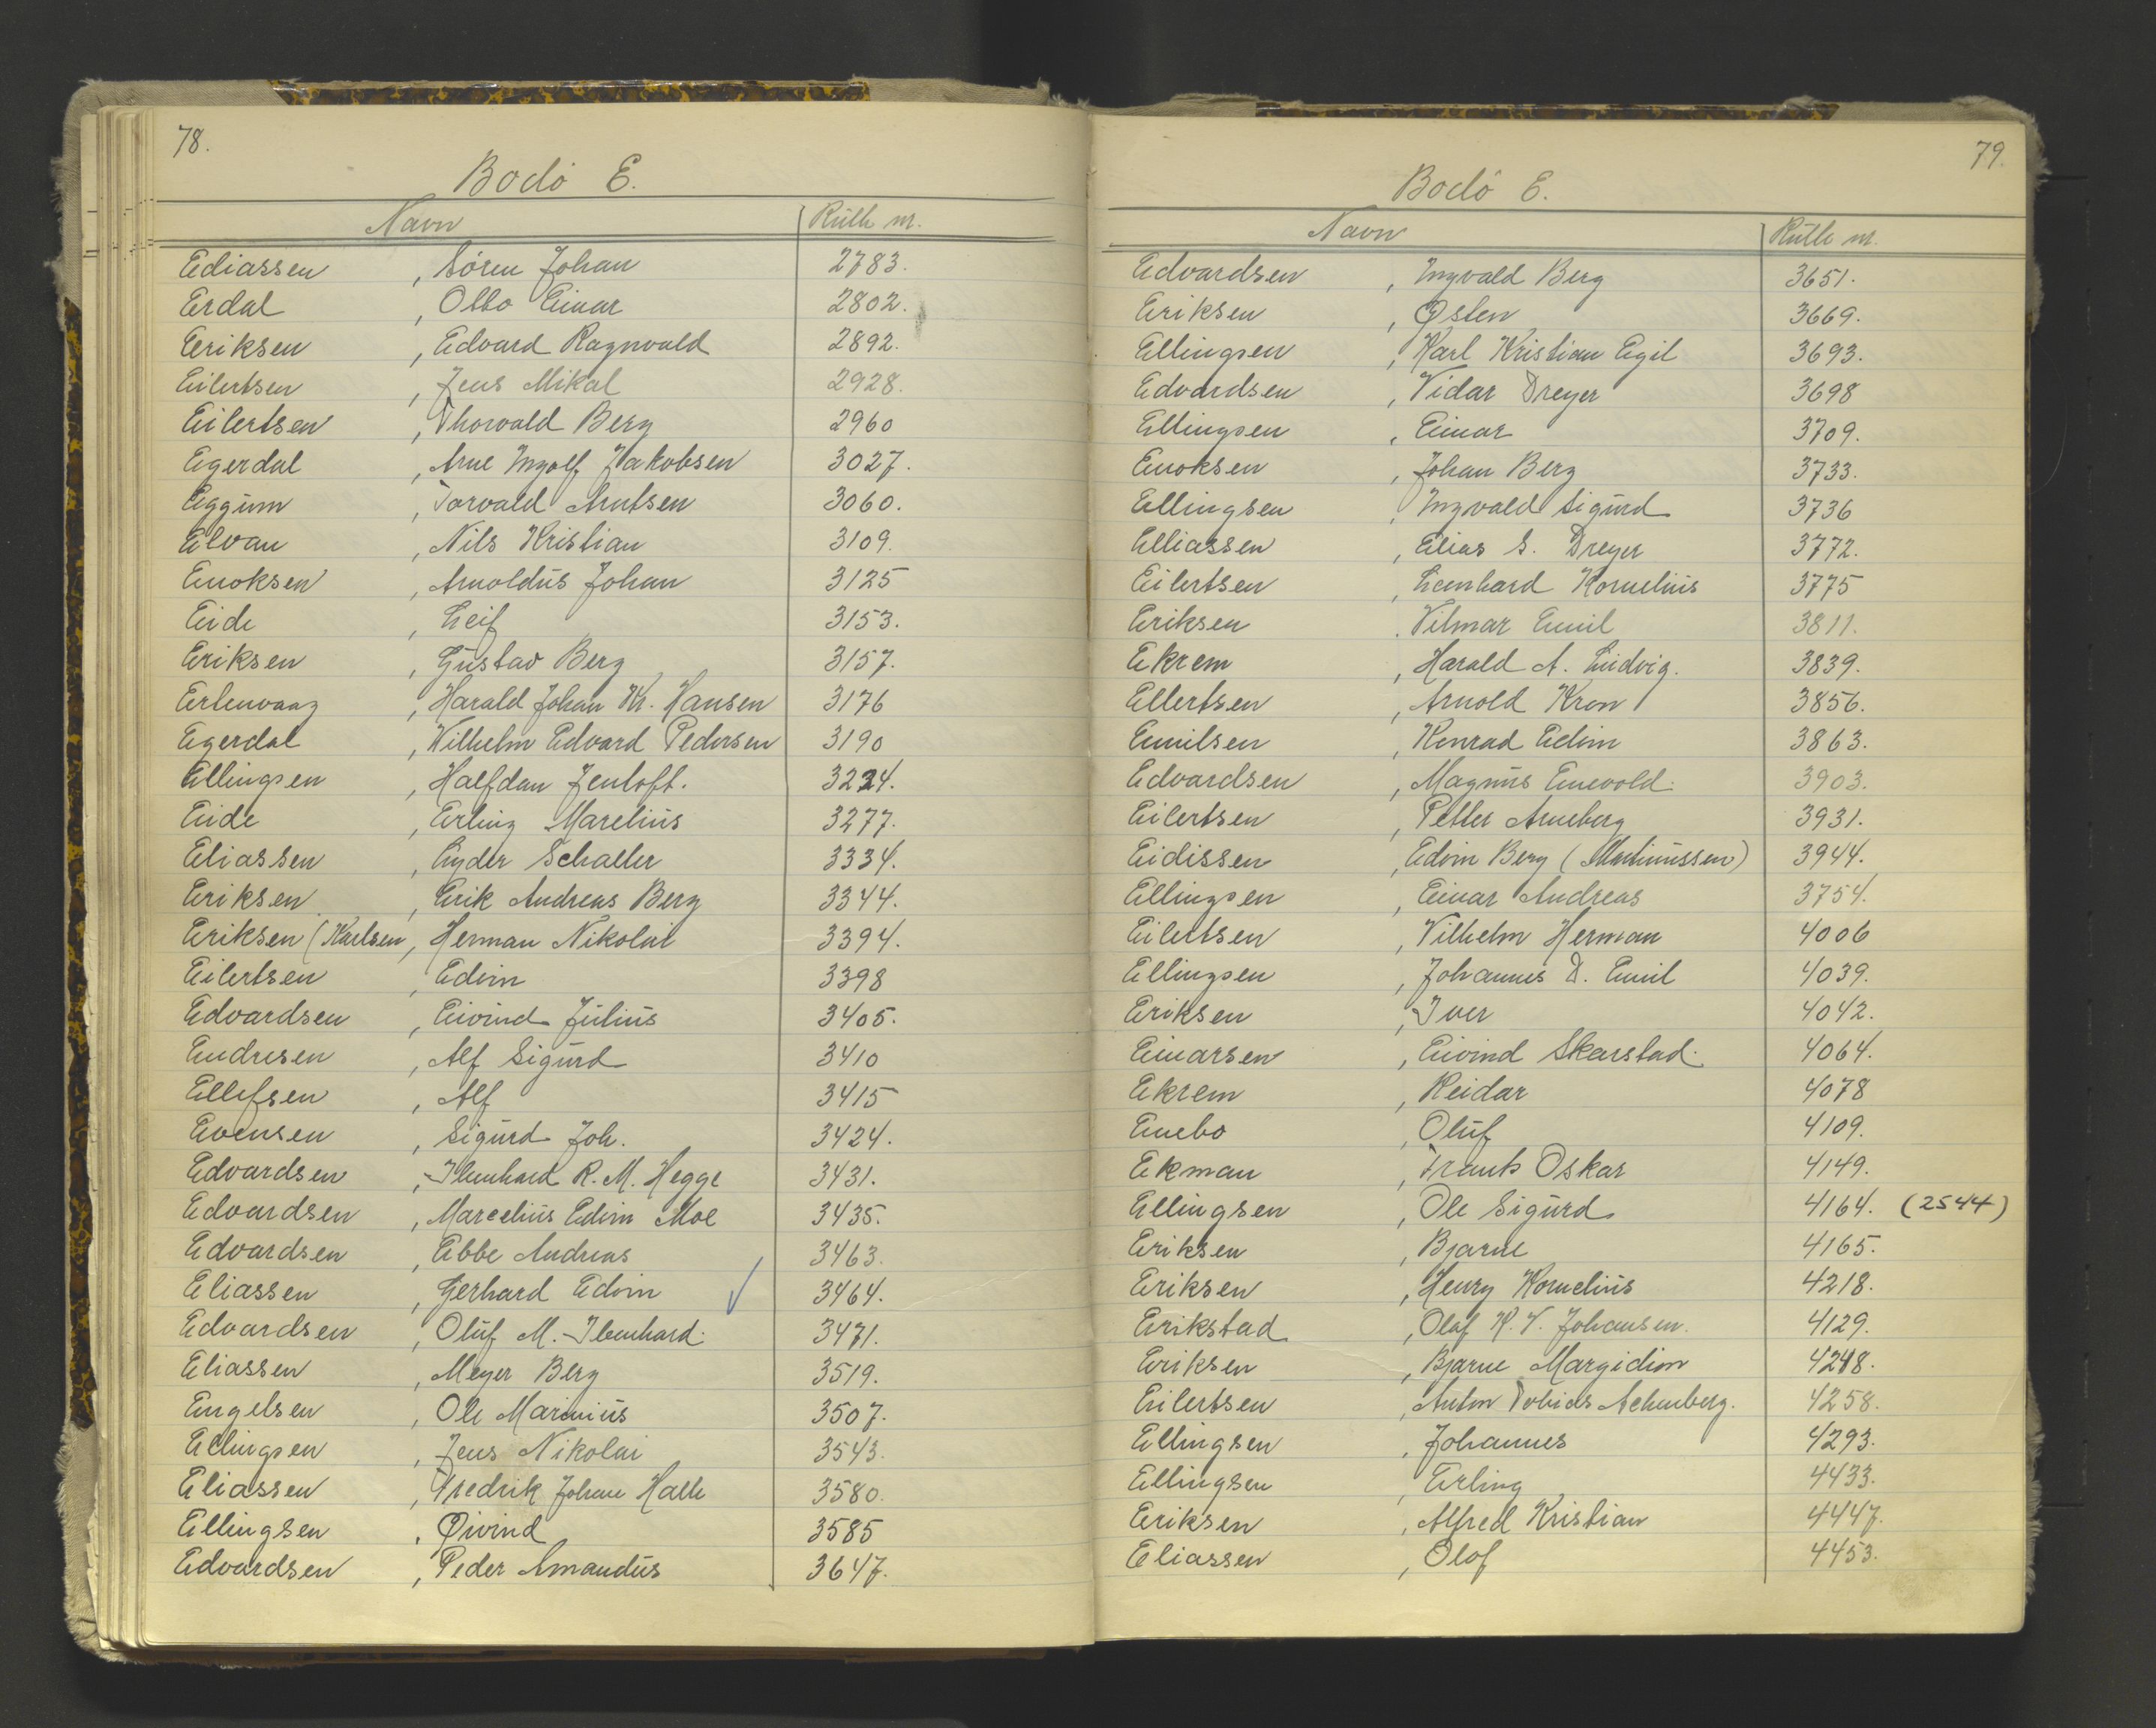 78.
Bodö E.
Navn Rulle nr.
Ediassen , Sören Johan 2783.
Erdal , Otto Einar 2802.
Eriksen , Edvard Ragnvald 2892.
Eilertsen , Jens Mikal 2928.
Eilertsen , Thorvald Berg 2960
Egerdal , Arne Ingolf Jakobsen 3027.
Eggum , Torvald Arntsen 3060.
Elvan , Nils Kristian 3109.
Enoksen , Arnoldus Johan 3125
Eide , Leif 3153.
Eriksen , Gustav Berg 3157.
Erlenvaag , Harald Johan Kr. Hansen 3176
Egerdal , Wilhelm Edvard Pedersen 3190
Ellingsen , Halfdan Jentoft. 3224.
Eide , Erling Marelius 3277.
Eliassen , Lyder Schaller 3334.
Eriksen , Erik Andreas Berg 3344.
Eriksen (Karlsen , Herman Nikolai 3394.
Eilertsen , Edvin 3398
Edvardsen , Eivind Julius 3405.
Endresen , Alf Sigurd 3410
Ellefsen , Alf 3415
Evensen , Sigurd Joh. 3424.
Edvardsen , Ibenhard R. M. Hegge 3431.
Edvardsen , Marcelius Edvin Moe 3435.
Edvardsen , Ebbe Andreas 3463.
Eliassen , Gerhard Edvin 3464.
Edvardsen , Oluf M. Ibenhard. 3471.
Eliassen , Meyer Berg 3519.
Engelsen , Ole Marinius 3507.
Ellingsen , Jens Nikolai 3543.
Eliassen , Fredrik Johan Halle 3580.
Ellingsen , Øivind 3585
Edvardsen , Peder Amandus 3647.
79.
Bodö E.
Navn Rulle nr.
Edvardsen , Ingvald Berg 3651.
Eriksen , Østen 3669.
Ellingsen , Karl Kristian Egil 3693.
Edvardsen , Vidar Dreyer 3698
Ellingsen , Einar 3709.
Enoksen , Johan Berg 3733.
Ellingsen , Ingvald Sigurd 3736
Elliassen , Elias S. Dreyer 3772.
Eilertsen , Leenhard Kornelius 3775
Eriksen , Vilmar Emil 3811.
Ekrem , Harald A. Ludvig. 3839.
Ellertsen , Arnold Kron 3856.
Emilsen , Konrad Edvin 3863.
Edvardsen , Magnus Enevold. 3903.
Eilertsen , Petter Arneberg 3931.
Eidissen , Edvin Berg (Martinussen) 3944.
Ellingsen , Einar Andreas 3754.
Eilertsen , Vilhelm Herman 4006
Ellingsen , Johannes D. Emil 4039.
Eriksen , Iver 4042.
Einarsen , Eivind Skarstad. 4064.
Ekrem , Reidar 4078
Enebo , Oluf 4109.
Ekman , Frants Oskar 4149.
Ellingsen , Ole Sigurd 4164. (2544)
Eriksen , Bjarne 4165.
Eriksen , Henry Kornelius 4218.
Erikstad , Olaf K. V. Johansen. 4129.
Eriksen , Bjarne Margidion 4248.
Eilertsen , Anton Tobias Achenberg. 4258.
Ellingsen , Johannes 4293.
Ellingsen , Erling 4433.
Eriksen , Alfred Kristian 4447.
Eliassen , Olof 4453.